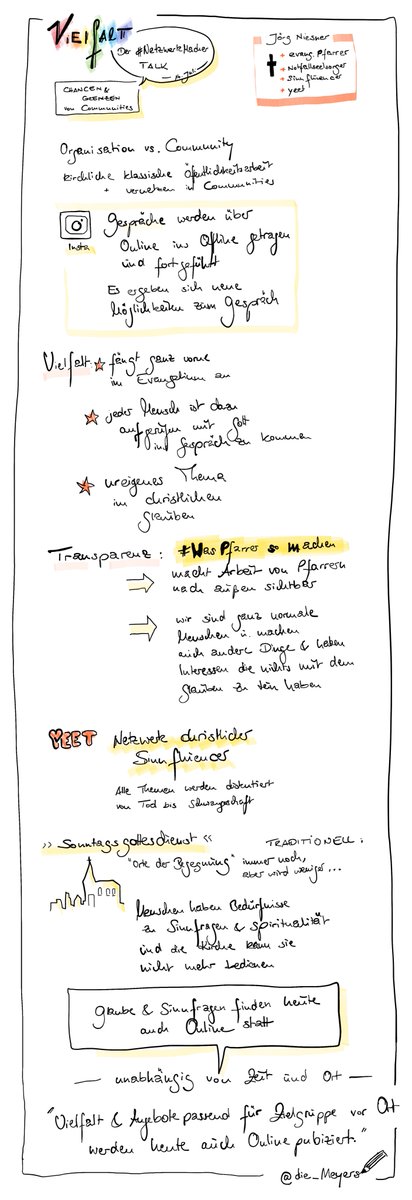 Vielfalt
Der #NetzwerkeMacher
TALK
CHANCEN &
GRENZEN
von Communities
Jörg Niesner
+ evang. Pfarrer
+ Notfallseelsorger
+ Sinnfluencer
+ yeet
Organisation vs. Community
kirchliche klassische Öffentlichkeitsarbeit
+ vernetzen in Communities
Insta
Gespräche werden über
Online ins Offline getragen
und fortgeführt
Es ergeben sich neue
Möglichkeiten zum Gespräch
Vielfalt: fängt ganz vorne
im Evangelium an
jeder Mensch ist dazu
aufgerufen mit Gott
ins Gespräch zu kommen
ureigenes Thema
im christlichen
Glauben
Transparenz: #WasPfarrer so machen
macht Arbeit von Pfarrern
nach außen sichtbar
wir sind ganz normale
Menschen u. machen
auch andere Dinge & haben
Interessen die nichts mit dem
Glauben zu tun haben
YEET Netzwerk christlicher
Sinnfluencer
Alle Themen werden diskutiert
von Tod bis Schwangerschaft
>> Sonntagsgottesdienst <<
TRADITIONELL:
"Orte der Begegnung" immer noch,
aber wird weniger...
Menschen haben Bedürfnisse
zu Sinnfragen & Spiritualität
und die Kirche kann sie
nicht mehr bedienen
Glaube & Sinnfragen finden heute
auch Online statt
— unabhängig von Zeit und Ort —
"Vielfalt & Angebote passend für Zielgruppe vor Ort
werden heute auch Online publiziert."
@die_Meyers